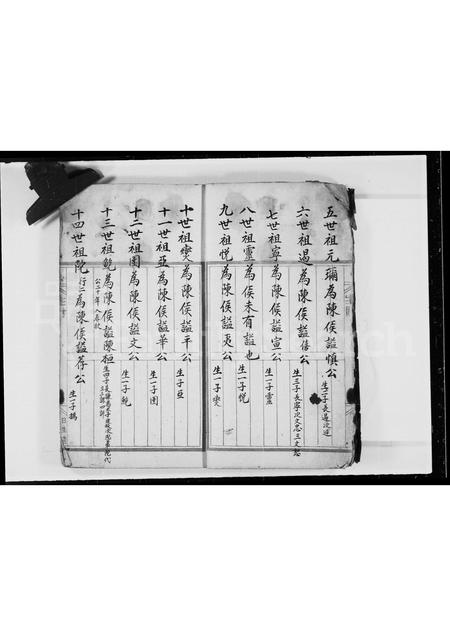 五世祖元彌為陳侯謚慎公 生二子長遏次逆
六世祖遏為陳侯謚僖公 生三子長寧次文忠三文恕
七世祖寧為陳侯謚宣公 生一子靈
八世祖靈為侯未有謚也 生一子悅
九世祖悅為陳侯謚夷公 生一子燮
十世祖燮為陳侯謚平公 生子亞
十一世祖亞為陳侯謚華公 生一子圉
十二世祖圉為陳侯謚文公 生一子鮑
十三世祖鮑為陳侯謚陳桓公
十四世祖陀行二為陳侯謚存公 生一子